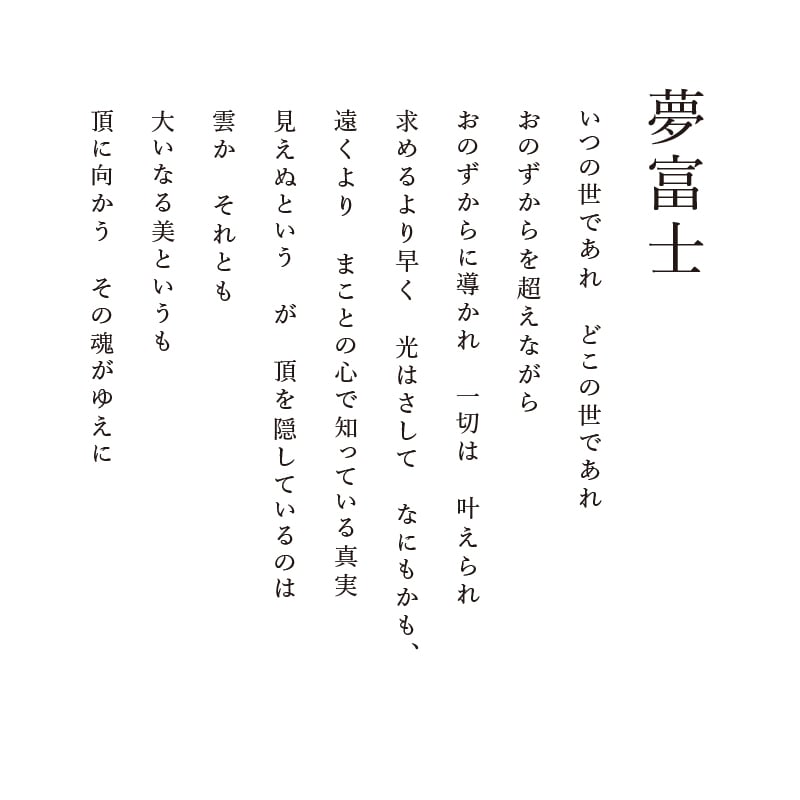 夢富士
いつの世であれ　どこの世であれ
おのずからを超えながら
おのずからに導かれ　一切は　叶えられ
求めるより早く　光はさして　なにもかも、
遠くより　まことの心で知っている真実
見えぬという　が　頂を隠しているのは
雲か　それとも
大いなる美というも
頂に向かう　その魂がゆえに